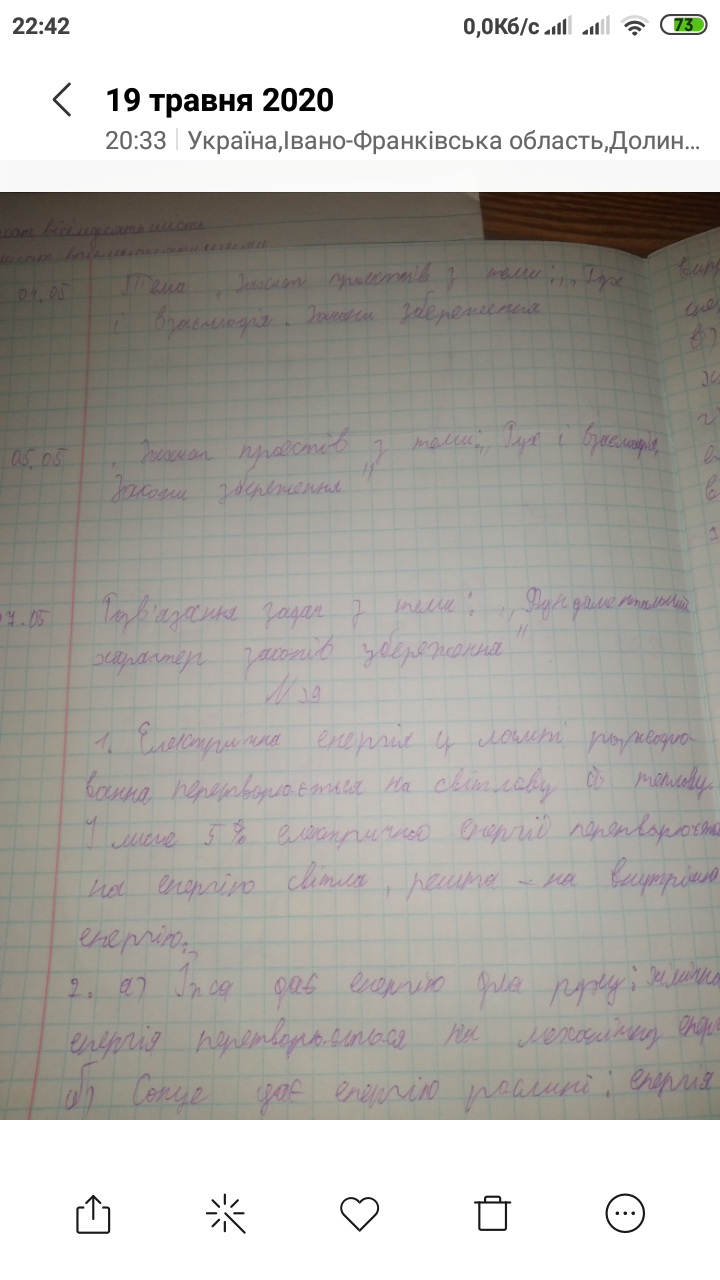 22:42 0,0Кб/с 73
19 травня 2020
20:33 Україна,Івано-Франківська область,Долин...
04.05 Тема Захист проєктів з теми: „Рух
і взаємодія. Закони збереження
05.05 Захист проєктів з теми: „Рух і взаємодія,
Закони збереження"
7.05 Розв'язання задач з теми: „Фундаментальний
характер законів збереження"
N 39
1. Електрична енергія у лампі розжарю-
вання перетворюється на світлову й теплову.
І лише 5% електричної енергії перетворюєть
на енергію світла, решта – на внутрішню
енергію.
2. а) Їжа дає енергію для руху: хімічна
енергія перетворюється на механічну енерг
б) Сонце дає енергію рослині: енергія